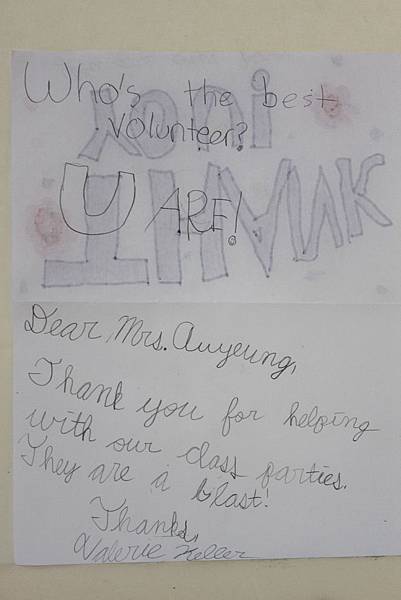 Who's the best
volunteer?
U ARE!
Dear Mrs. Auyeung,
Thank you for helping
with our class parties.
They are a blast!
Thanks,
Valerie Keller